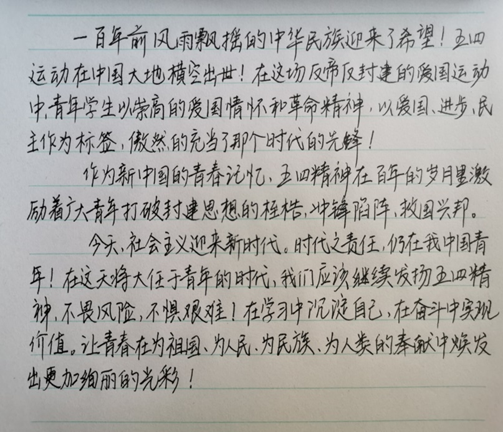 一百年前风雨飘摇的中华民族迎来了希望！五四
运动在中国大地横空出世！在这场反帝反封建的爱国运动
中，青年学生以崇高的爱国情怀和革命精神，以爱国、进步、民
主作为标签，傲然的充当了那个时代的先锋！
作为新中国的青春记忆，五四精神在百年的岁月里激
励着广大青年打破封建思想的桎梏，冲锋陷阵，救国兴邦。
今天，社会主义迎来新时代。时代之责任，仍在我中国青
年！在这天将大任于青年的时代，我们应该继续发扬五四精
神，不畏风险，不惧艰难！在学习中沉淀自己，在奋斗中实现
价值。让青春在为祖国、为人民、为民族、为人类的奉献中焕发
出更加绚丽的光彩！